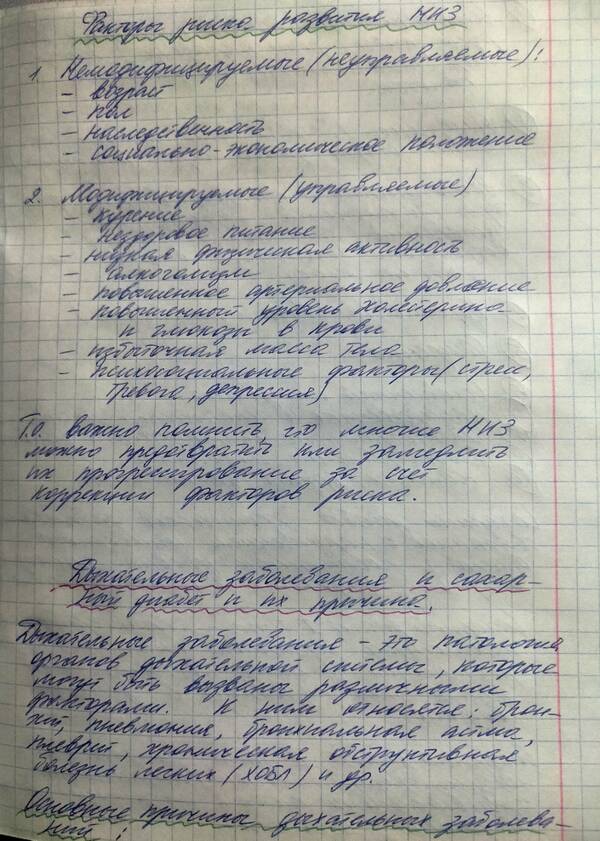 Факторы риска развития НИЗ
1. Немодифицируемые (неуправляемые):
– возраст
– пол
– наследственность
– социально-экономическое положение
2. Модифицируемые (управляемые)
– курение
– нездоровое питание
– низкая физическая активность
– алкоголизм
– повышенное артериальное давление
– повышенный уровень холестерина
и глюкозы в крови
– избыточная масса тела
– психосоциальные факторы (стресс,
тревога, депрессия)
Т.о. важно помнить, что многие НИЗ
можно предотвратить или замедлить
их прогрессирование за счёт
коррекции факторов риска.
Дыхательные заболевания и сахар-
ный диабет и их причина.
Дыхательные заболевания – это патология
органов дыхательной системы, которые
могут быть вызваны различными
факторами. К ним относятся: брон-
хит, пневмония, бронхиальная астма,
плеврит, хроническая обструктивная
болезнь легких (ХОБЛ) и др.
Основные причины дыхательных заболева-
ний: